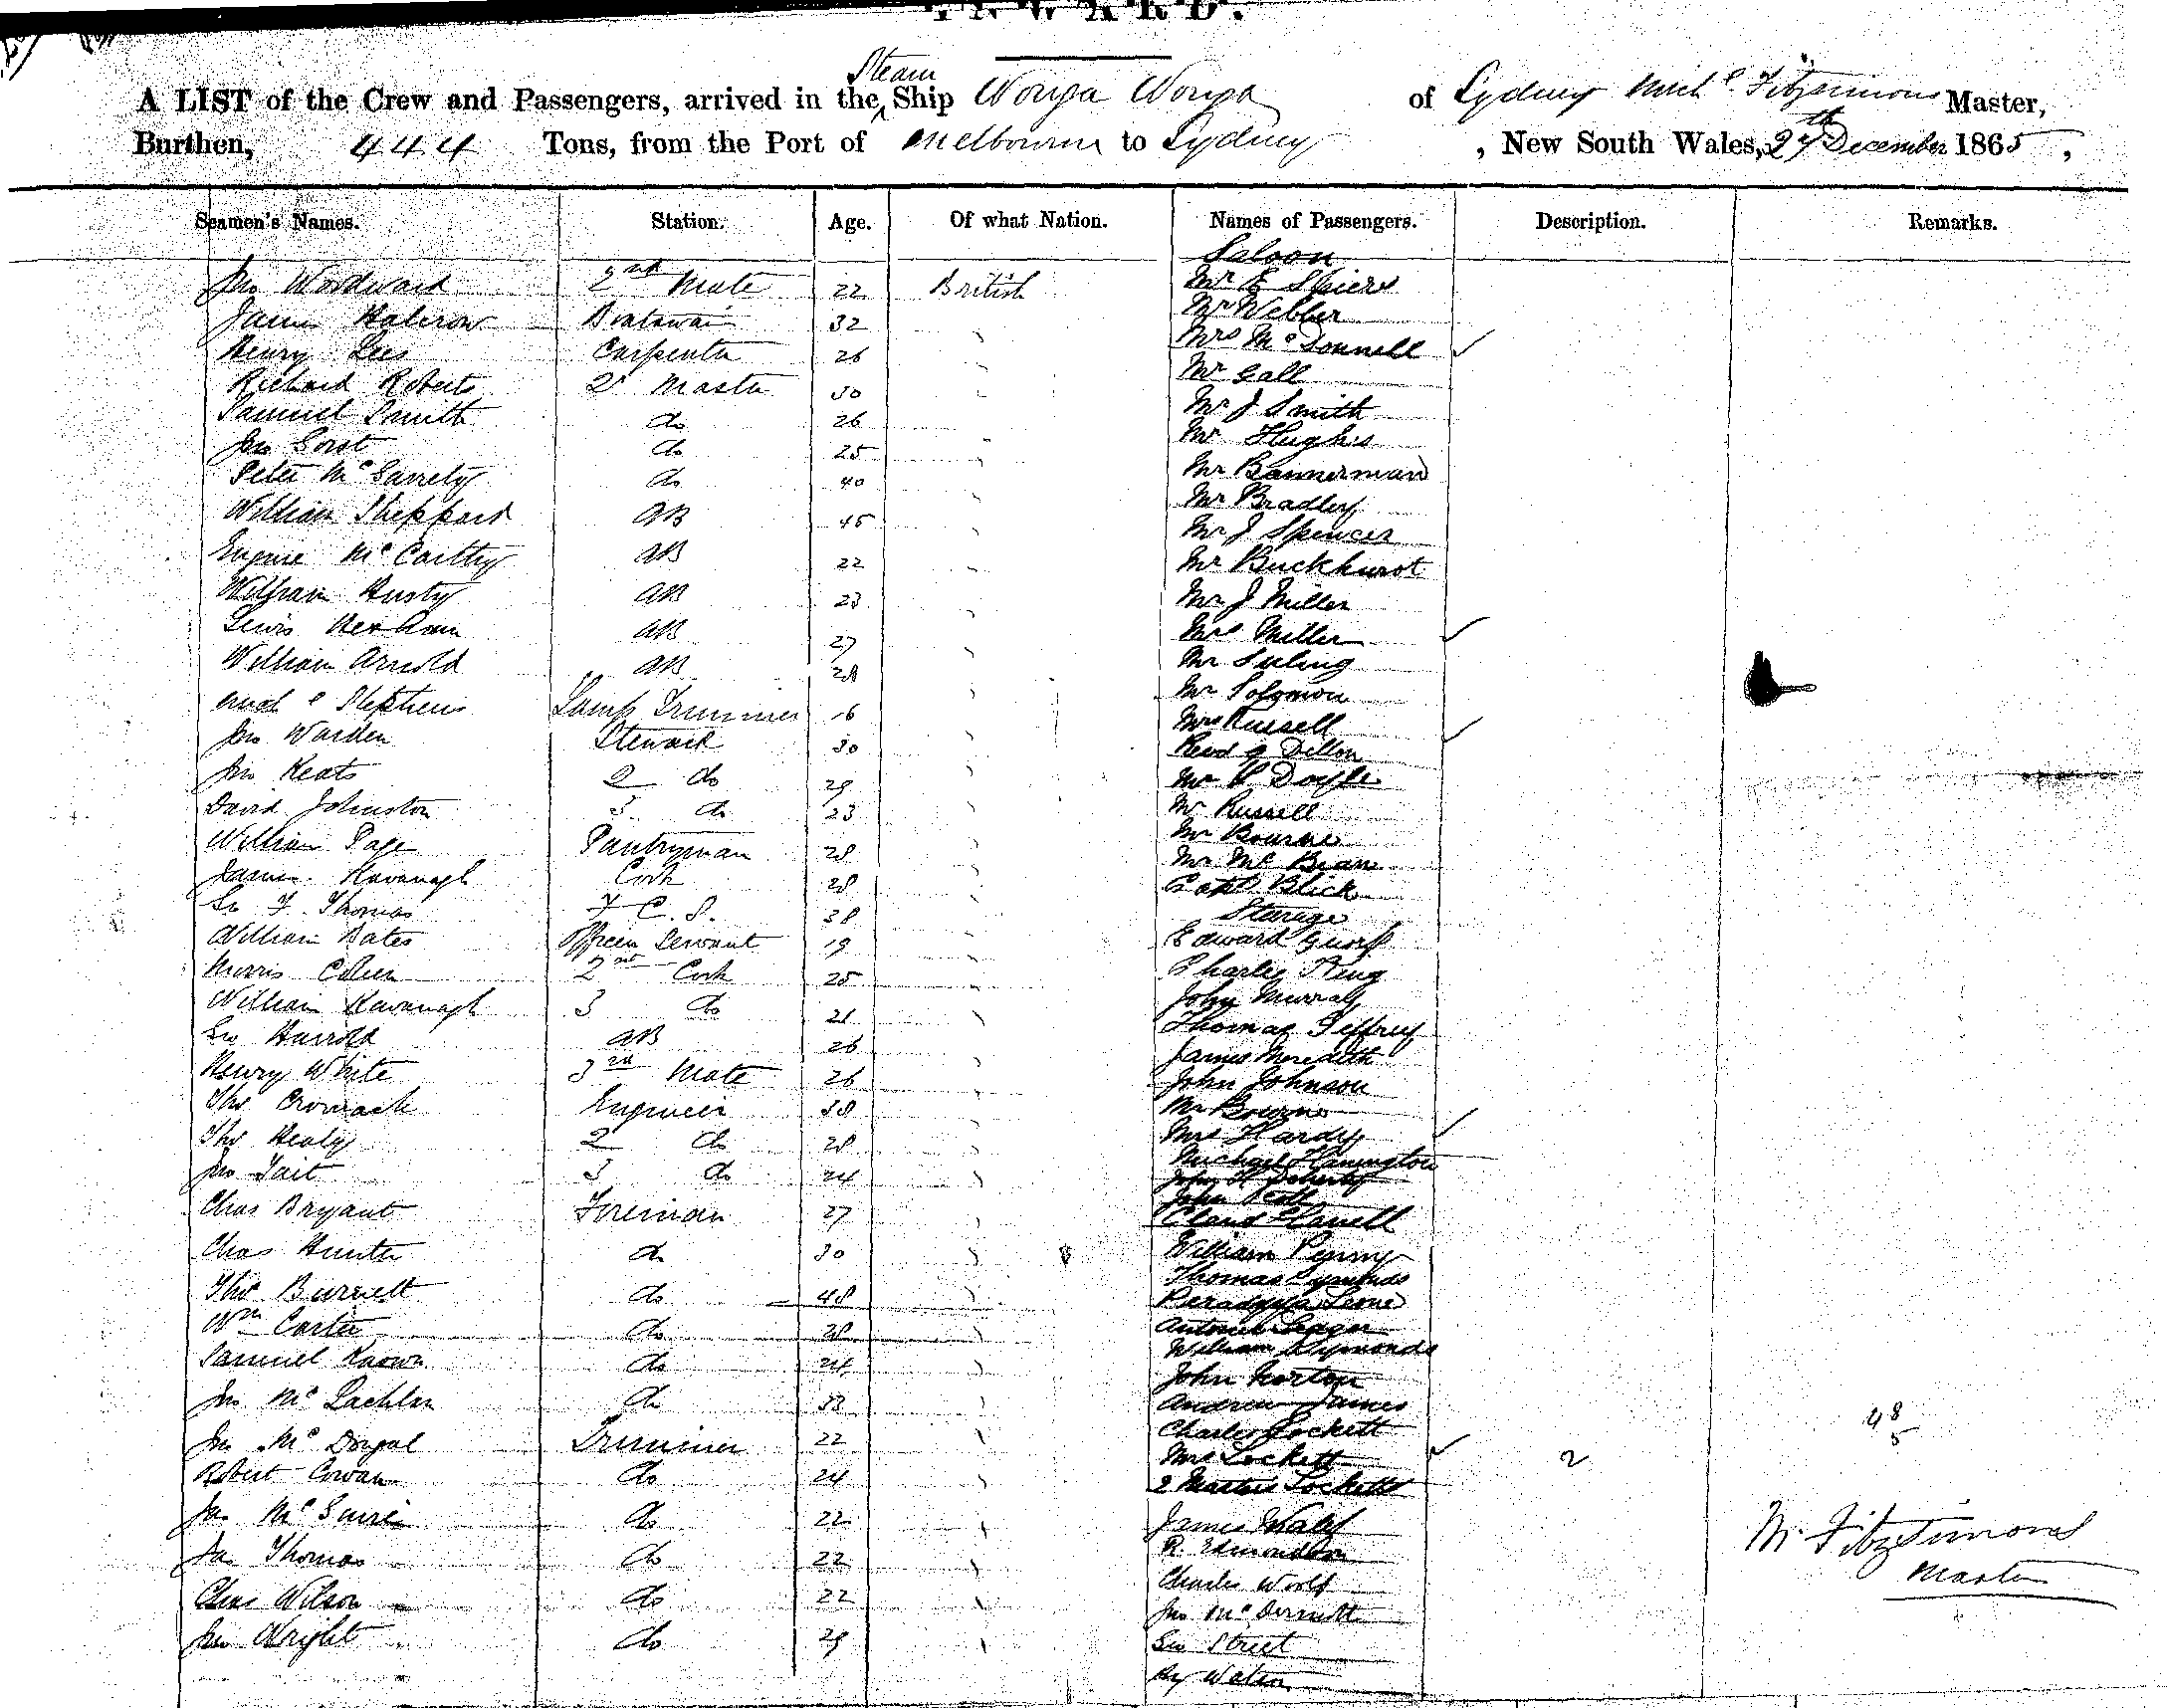 INWARD.
A LIST of the Crew and Passengers, arrived in the Steam Ship Wonga Wonga of Sydney Michl Fitzsimons Master,
Burthen, 444 Tons, from the Port of Melbourne to Sydney, New South Wales, 27th December 1865,
Seamen's Names. Station. Age. Of what Nation. Names of Passengers. Description. Remarks.
Saloon
Jno Woodward 2nd Mate 22 British Mr E Spiers
James Halcrow Boatswain 32 Mr Webber
Henry Lees Carpenter 26 Mrs McDonnell
Richard Roberts 2r Master 30 Mr Gall
Samuel Smith do 26 Mr J Smith
Jno Gorst do 25 Mr Hughes
Peter McGarrety do 40 Mr Bannerman
William Sheppard AB 45 Mr Bradley
Mr J Spencer
Eugene McCarthy AB 22 Mr Buckhurst
William Husty AB 23 Mr J Miller
Lewis AB 27 Mrs Miller
William Arnold AB 28 Mr Suling
Michl Stephens Lamp Trimmer 16 Mr Solomon
Jno Warden Steward 30 Mrs Russell
Revd G Dillon
Jno Keats 2 do 29 Mr P Doyle
David Johnston 3 do 23 Mr Russell
William Page Pantryman 28 Mr Bourne
James Kavanagh Cook 28 Mr McBean
Capt Blick
Geo F. Thomas F. C. S. 38 Steerage
William Bates Officers Servant 19 Edward
Morris Cohen 2nd Cook 25 Charles King
William Kavanagh 3 do 21 John Murray
Geo Harrold AB 26 Thomas Jeffrey
Henry White 3rd Mate 26 James Meredith
John Johnson
Thos Cromack Engineer 38 Mr Bourne
Thos Healy 2 do 28 Mrs Hardy
Michael Hanington
Jno Tait 3 do 24 John H Doherty
John Scott
Chas Bryant Fireman 27 Harrell
Chas Hunter do 30 William Penny
Thomas Symonds
Thos Burnett do 48 Leone
Wm Carter do 28 Antonio
William Symonds
Samuel Known do 24 John Norton
Jno McLachlan do 33 Andrew James
48
5
Charles Lockett
Jno McDougal Trimmer 22 Mrs Lockett 2
Robert Cowan do 24 2 Masters Lockett
Jas McGuire do 22 James Wales
M. Fitzsimons
Master
Jas Thomas do 22 R. Edmondson
Chas Wilson do 22 Charles Woolf
Jno McDermott
Jno Wright do 29 Geo Street
Hy Watson